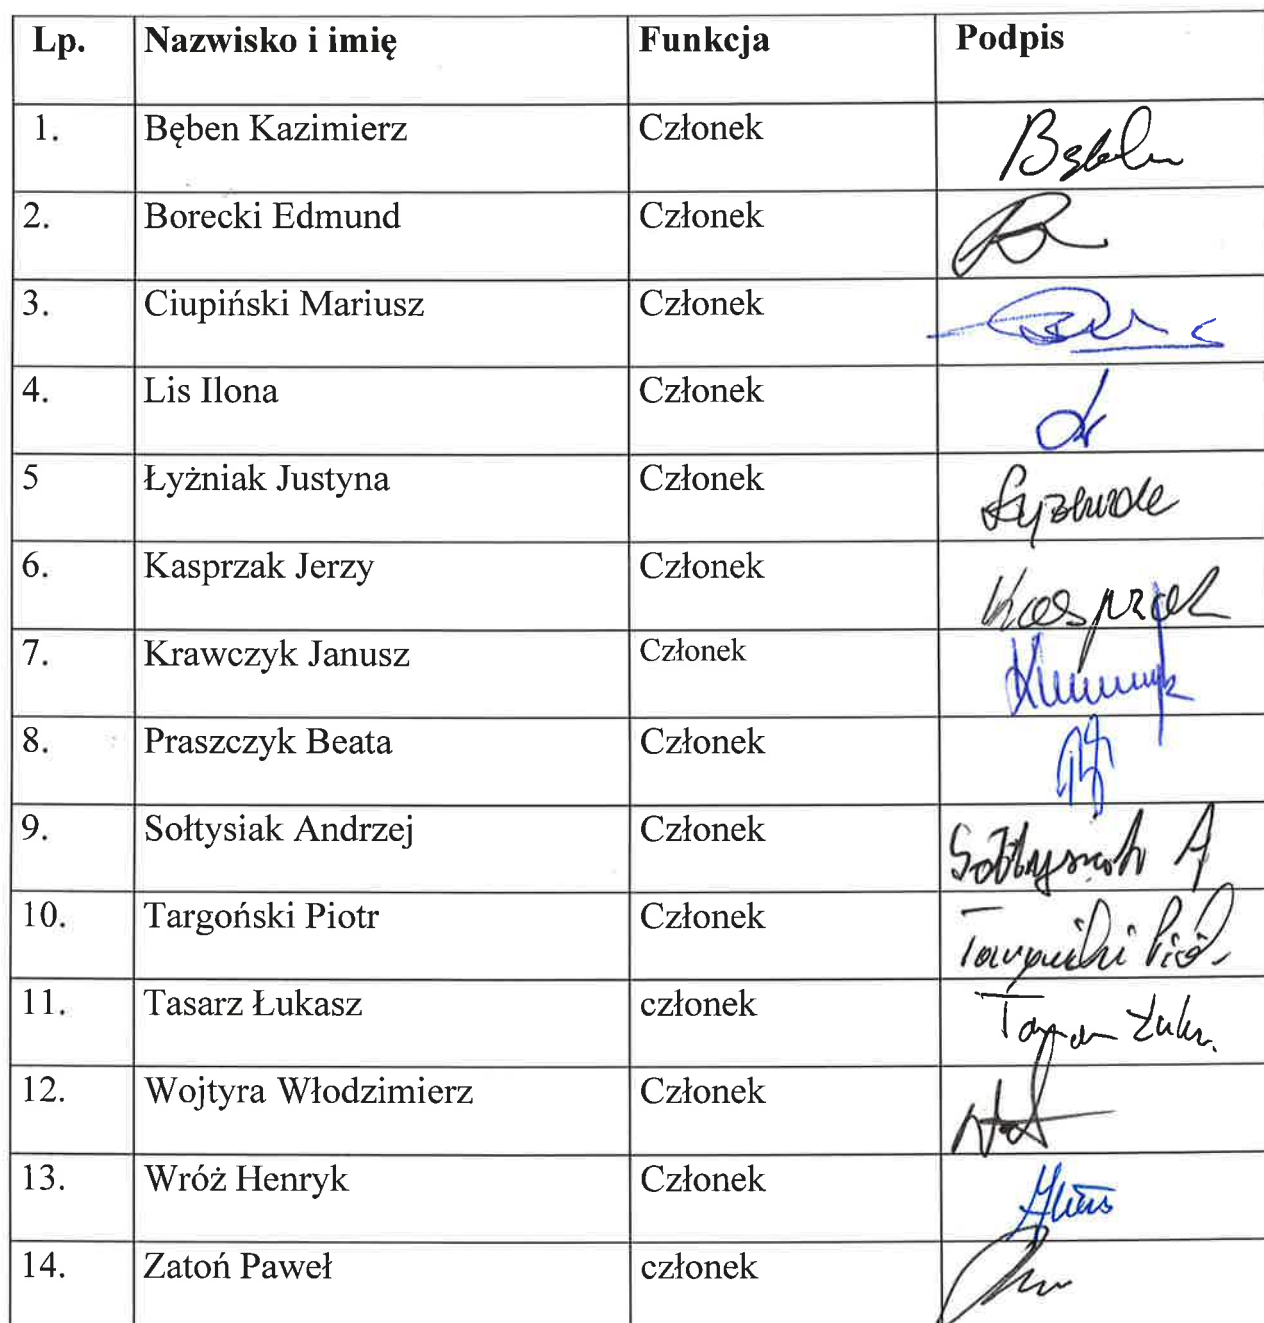 Lp. Nazwisko i imię Funkcja Podpis
1. Bęben Kazimierz Członek
2. Borecki Edmund Członek
3. Ciupiński Mariusz Członek
4. Lis Ilona Członek
5 Łyżniak Justyna Członek
6. Kasprzak Jerzy Członek Kasprzak
7. Krawczyk Janusz Członek
8. Praszczyk Beata Członek
9. Sołtysiak Andrzej Członek Sołtysiak A
10. Targoński Piotr Członek
11. Tasarz Łukasz członek
12. Wojtyra Włodzimierz Członek
13. Wróż Henryk Członek
14. Zatoń Paweł członek